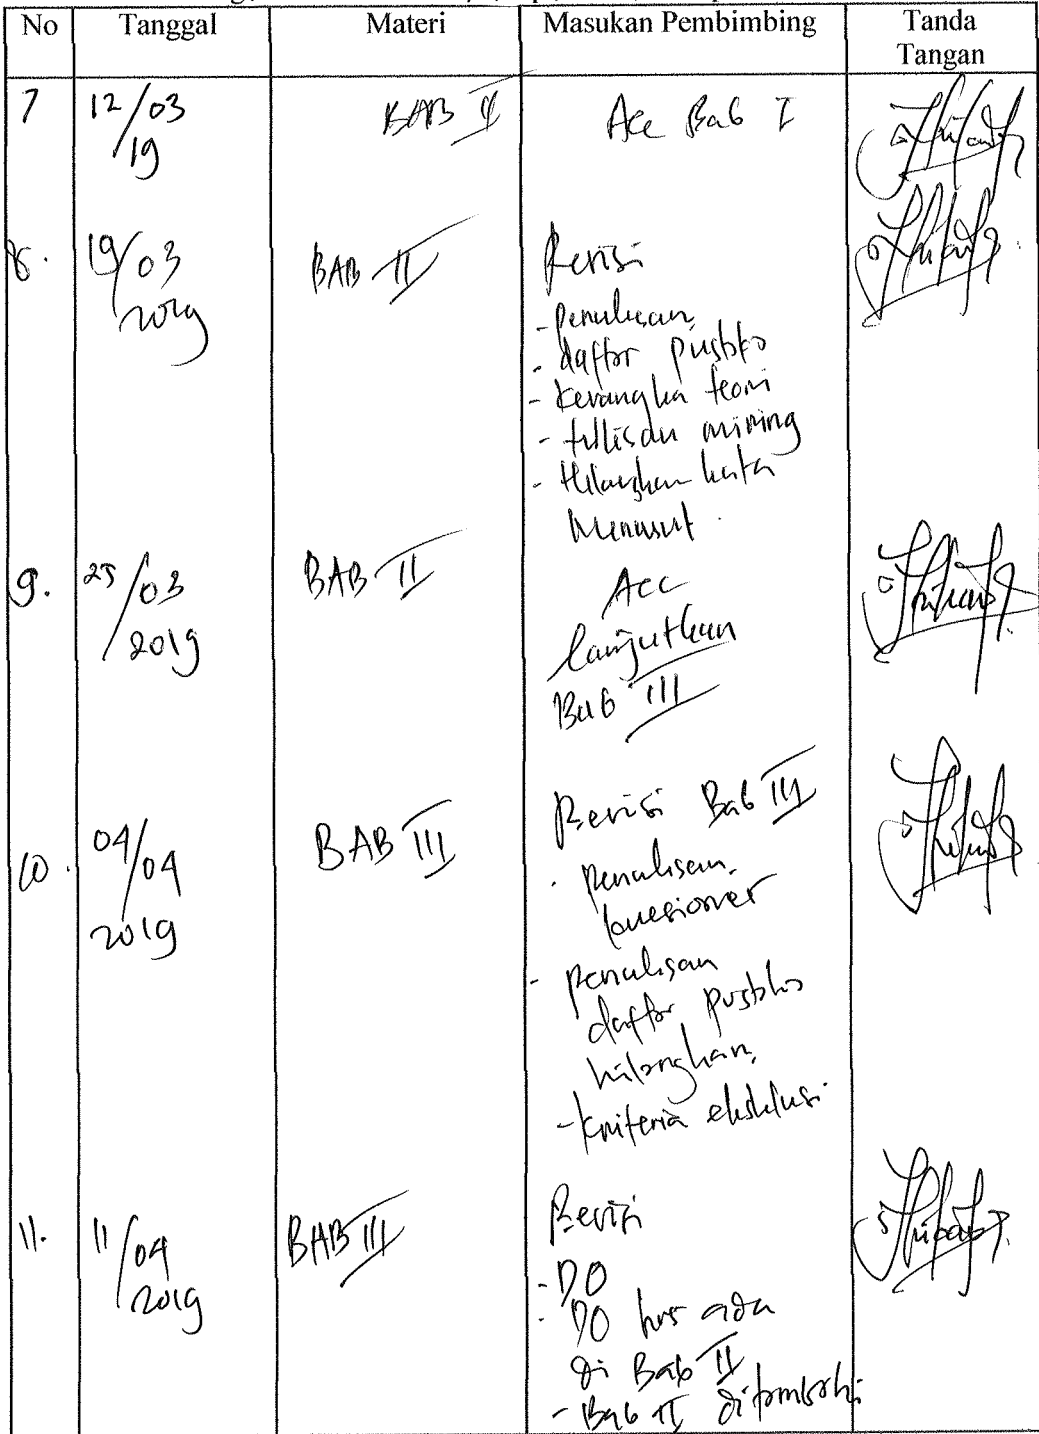 No Tanggal Materi Masukan Pembimbing Tanda
Tangan
7 12/03 BAB II Acc Bab I
19
8. 19/03 BAB II Revisi
2019
- penulisan
- daftar pustaka
- kerangka teori
- tulisan miring
- Hilangkan kata
Menurut.
9. 25/03 BAB II Acc
2019 lanjutkan
Bab III
10. 04/04 BAB III Revisi Bab III
2019
- penulisan
kuesioner
- penulisan
daftar pustaka
hilangkan
- kriteria eksklusi
11. 11/04 BAB III Revisi
2019
- DO
- DO hrs ada
di Bab II
- Bab II ditambahi